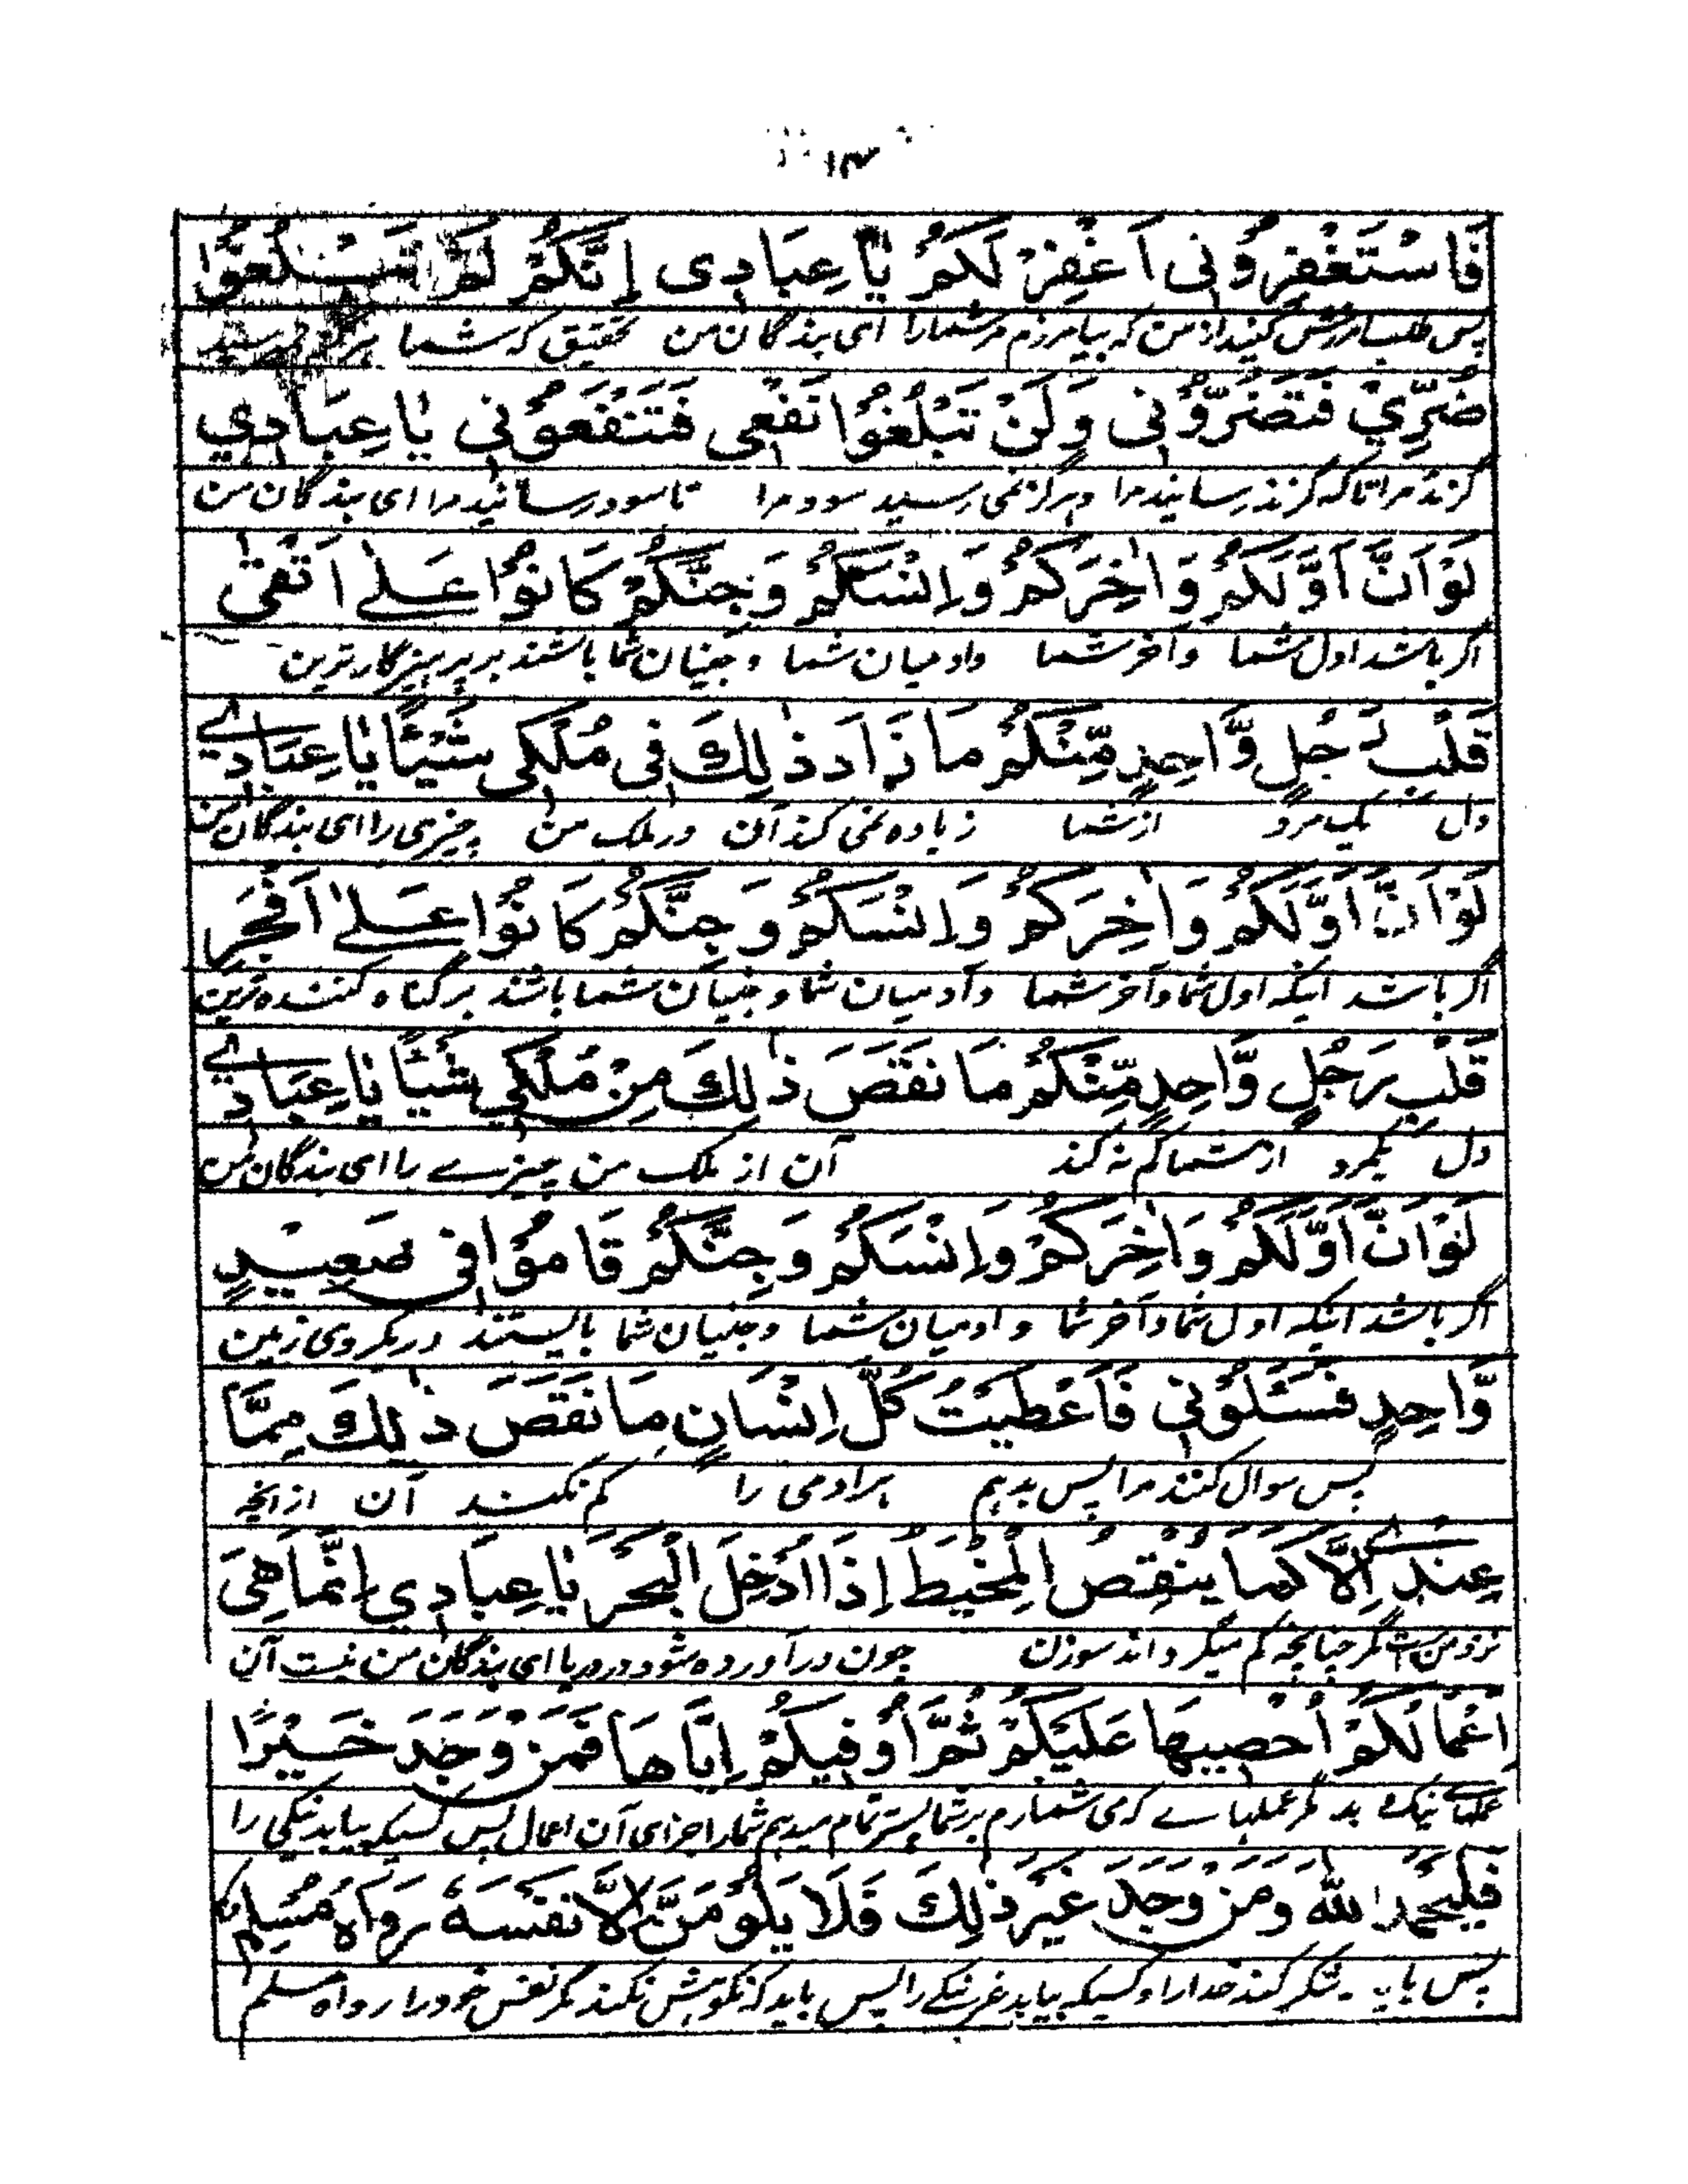 ۱۳
فَاسْتَغْفِرُوْنِی اَغْفِرْ لَكُمْ یَا عِبَادِی اِنَّكُمْ لَمْ
پس طلب آمرزش کنید از من که بیامرزم مر شمارا ای بندگان من تحقیق که شما
ضُرِّیْ فَتَضُرُّوْنِی وَلَنْ تَبْلُغُوْا نَفْعِی فَتَنْفَعُوْنِی یَا عِبَادِي
گزند مرا تا که گزند رسانید مرا و هرگز نمی رسید سود مرا تا سود رسانید مرا ای بندگان من
لَوْ اَنَّ اَوَّلَكُمْ وَاٰخِرَكُمْ وَاِنْسَكُمْ وَجِنَّكُمْ كَانُوْا عَلٰے اَتْقٰی
اگر باشد اول شما و آخر شما و ادمیان شما و جنیان شما باشند بر پرهیزگار ترین
قَلْبِ رَجُلٍ وَّاحِدٍ مِّنْكُمْ مَا زَادَ ذٰلِكَ فِی مُلْكِی شَیْئًا یَا عِبَادِے
دل یک مرد از شما زیاده نمی کند آن در ملک من چیزی را ای بندگان من
لَوْ اَنَّ اَوَّلَكُمْ وَاٰخِرَكُمْ وَاِنْسَكُمْ وَجِنَّكُمْ كَانُوْا عَلٰے اَفْجَرِ
اگر باشد اینکه اول شما و آخر شما و آدمیان شما و جنیان شما باشند بر گناه کننده ترین
قَلْبِ رَجُلٍ وَّاحِدٍ مِّنْكُمْ مَا نَقَصَ ذٰلِكَ مِنْ مُلْكِی شَیْئًا یَا عِبَادِے
دل یکمرد از شما کم نه کند آن از ملک من چیزے را ای بندگان من
لَوْ اَنَّ اَوَّلَكُمْ وَاٰخِرَكُمْ وَاِنْسَكُمْ وَجِنَّكُمْ قَامُوْا فِی صَعِیْدٍ
اگر باشد اینکه اول شما و آخر شما و ادمیان شما و جنیان شما بایستند در یکروی زمین
وَّاحِدٍ فَسَئَلُوْنِی فَاَعْطَیْتُ كُلَّ اِنْسَانٍ مَا نَقَصَ ذٰلِكَ مِمَّا
پس سوال کنند مرا پس بدهم هر ادمی را کم نکند آن از انچه
عِنْدِے اِلَّا كَمَا یَنْقُصُ الْمِخْیَطُ اِذَا اُدْخِلَ الْبَحْرَ یَا عِبَادِي اِنَّمَا هِیَ
نزد من ست مگر چنانچه کم میگرداند سوزن چون در آورده شود در دریا ای بندگان من نیست آن
اَعْمَالُكُمْ اُحْصِیْهَا عَلَیْكُمْ ثُمَّ اُوَفِّیْكُمْ اِیَّاهَا فَمَنْ وَجَدَ خَیْرًا
عملهاے نیک و بد مگر عملهاے که می شمارم بر شما پستر تمام میدهم شمارا جزای آن اعمال پس کسیکه بیابد نیکی را
فَلْیَحْمَدِ اللهَ وَمَنْ وَجَدَ غَیْرَ ذٰلِكَ فَلَا یَلُوْمَنَّ اِلَّا نَفْسَهٗ رَوَاهُ مُسْلِم
پس شکر کند خدا را و کسیکه بیابد غیر نیکے را پس باید که نکوهش نکند مگر نفس خود را رواه مسلم